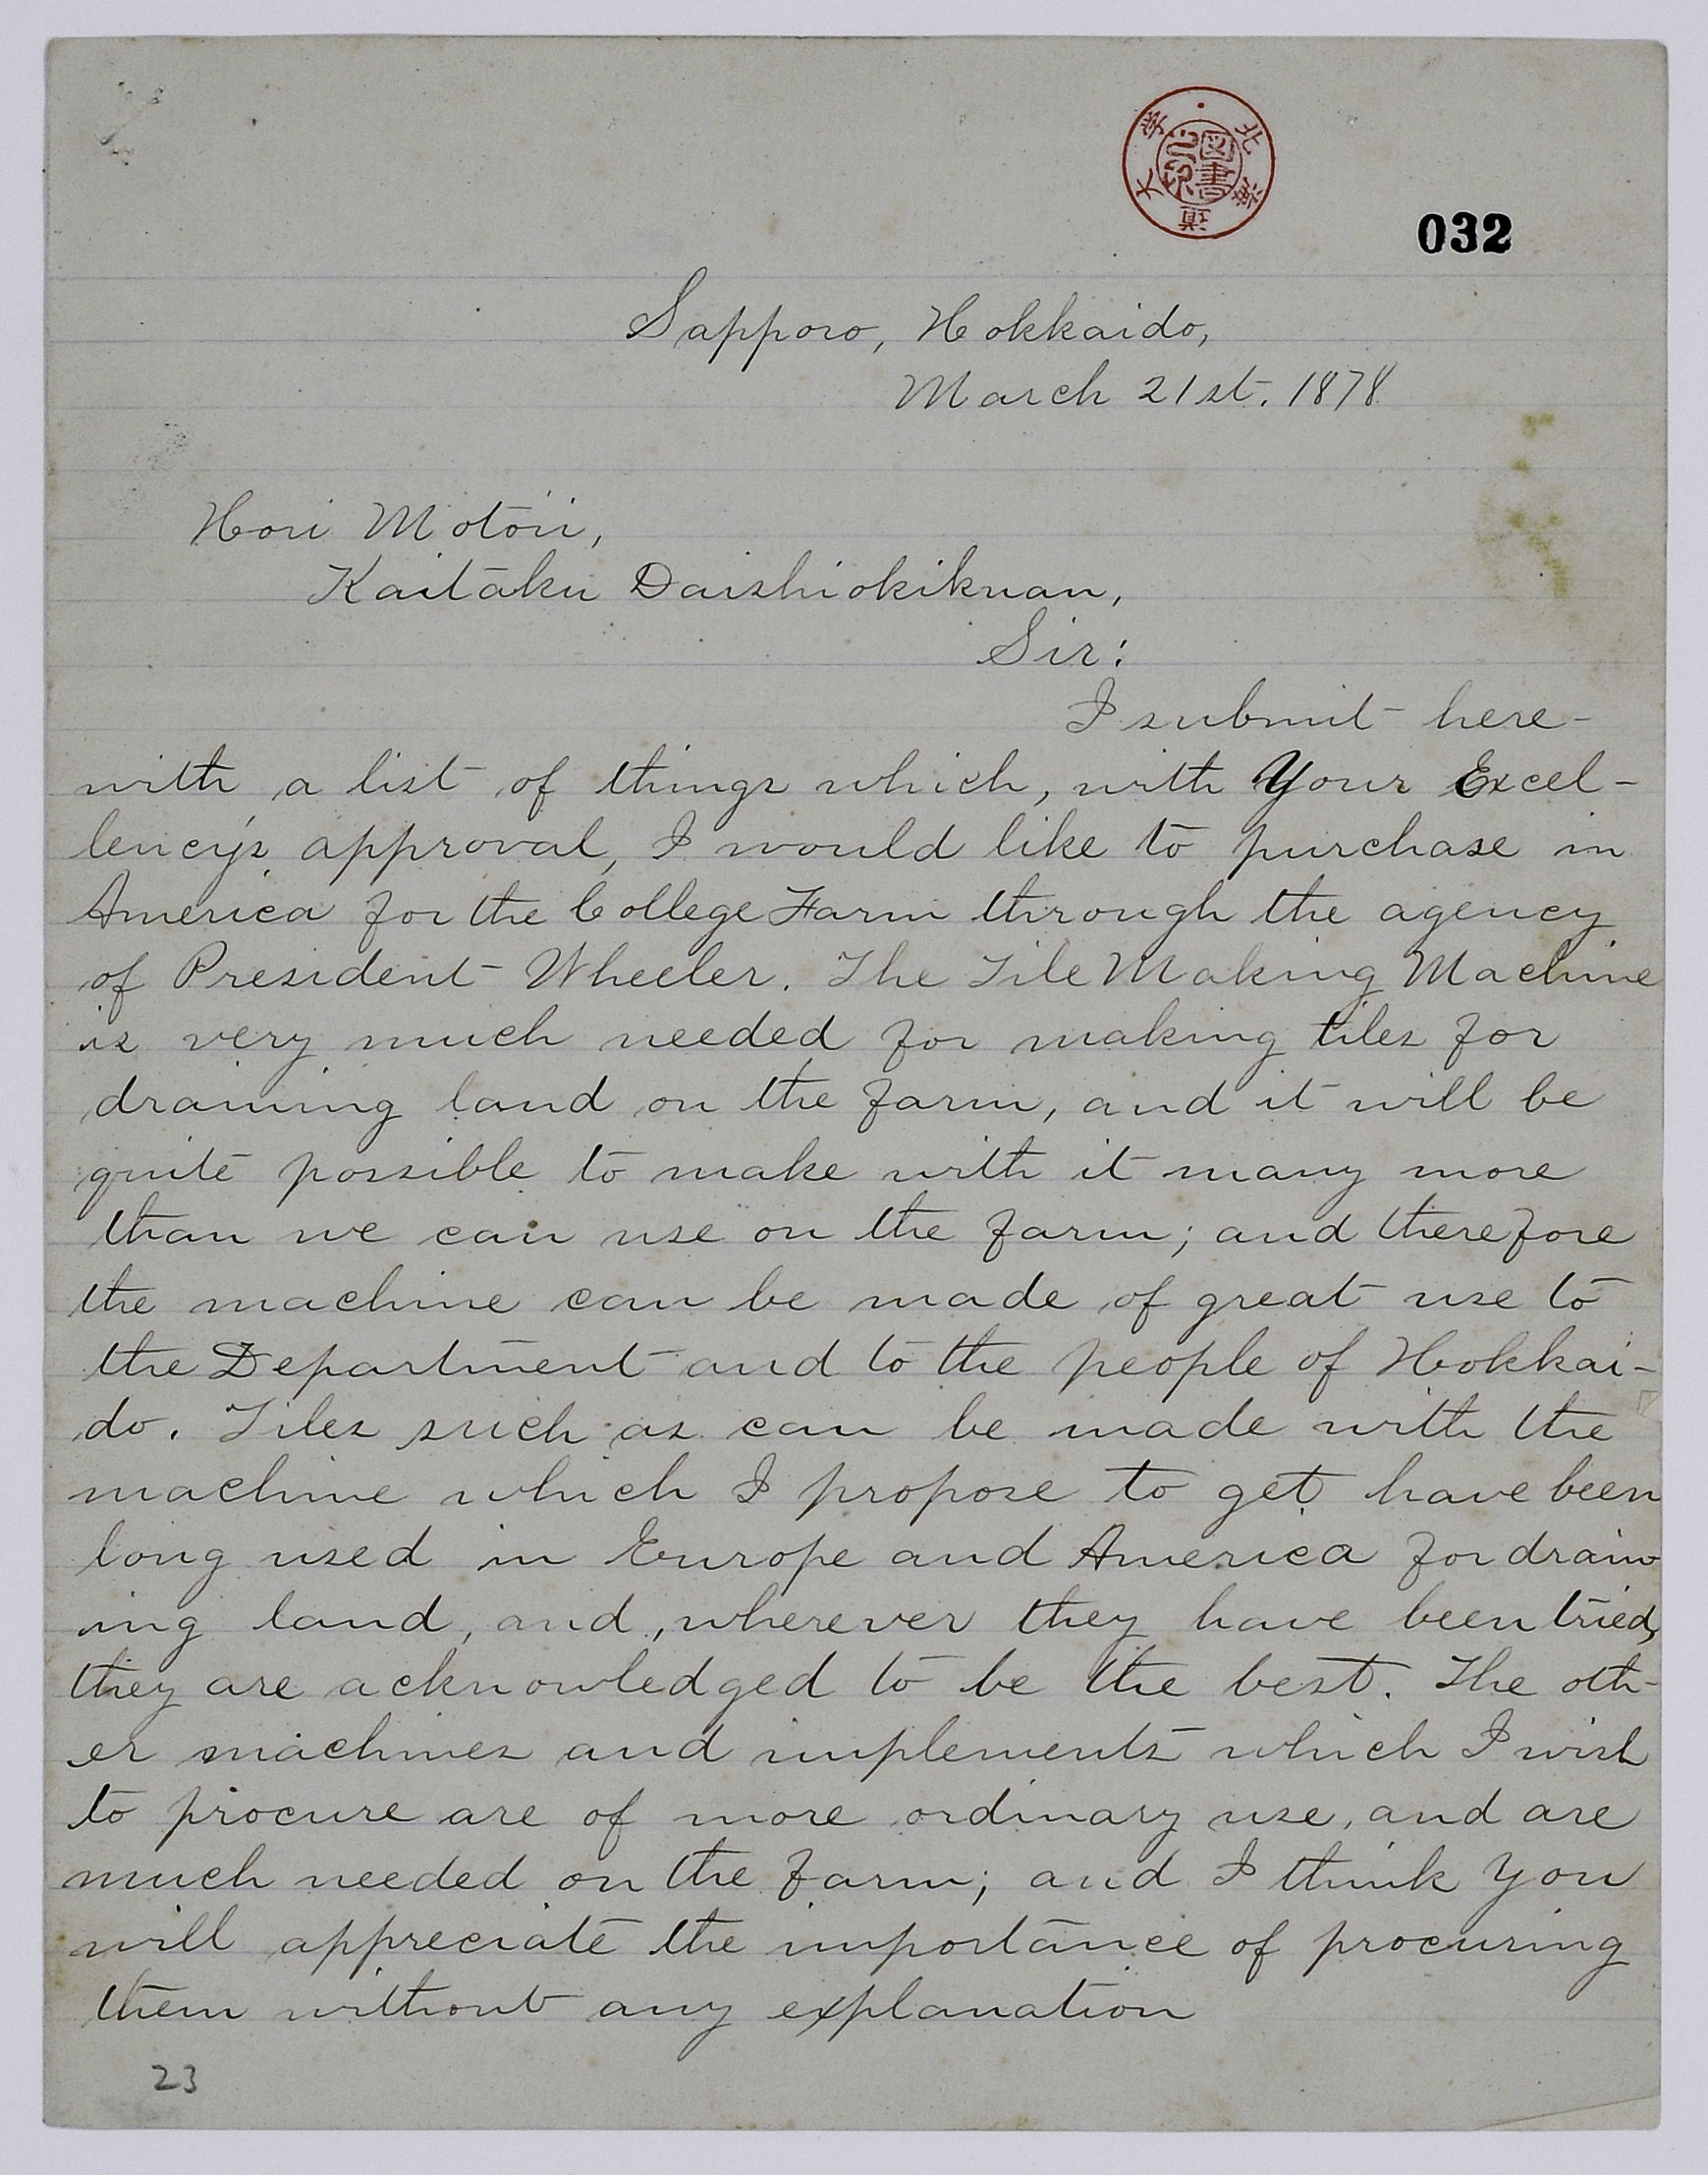 北海道大学
図書之印
032
Sapporo, Hokkaido,
March 21st. 1878
Hori Motoii,
Kaitaku Daishiokikuan,
Sir:
I submit here-
with a list of things which, with Your Excel-
lency's approval, I would like to purchase in
America for the College Farm through the agency
of President Wheeler. The Tile Making Machine
is very much needed for making tiles for
draining land on the farm, and it will be
quite possible to make with it many more
than we can use on the farm; and therefore
the machine can be made of great use to
the Department and to the people of Hokkai-
do. Tiles such as can be made with the
machine which I propose to get have been
long used in Europe and America for drain-
ing land, and, wherever they have been tried,
they are acknowledged to be the best. The oth-
er machines and implements which I wish
to procure are of more ordinary use, and are
much needed on the farm; and I think you
will appreciate the importance of procuring
them without any explanation
23